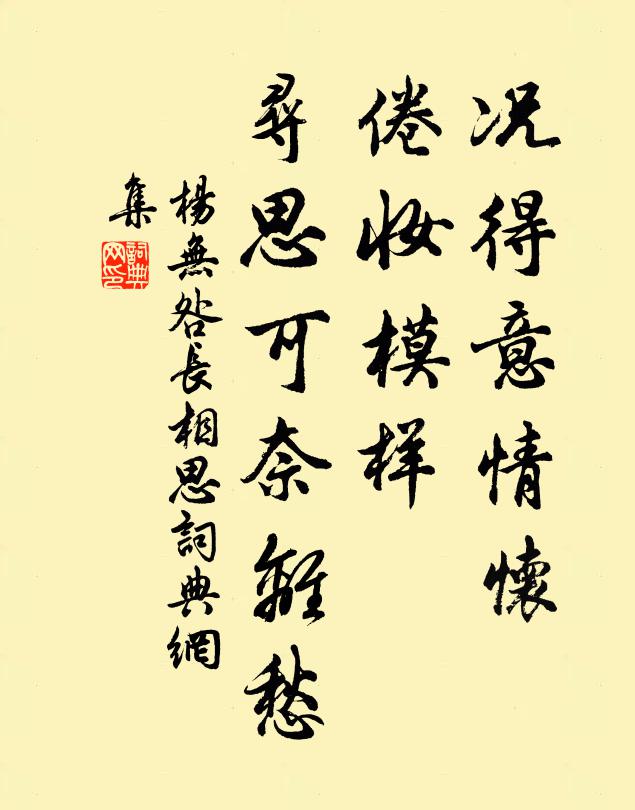 况得意情懷
倦妝模样
尋思可奈離愁
楊無咎長相思詞典網
集
詞典网印